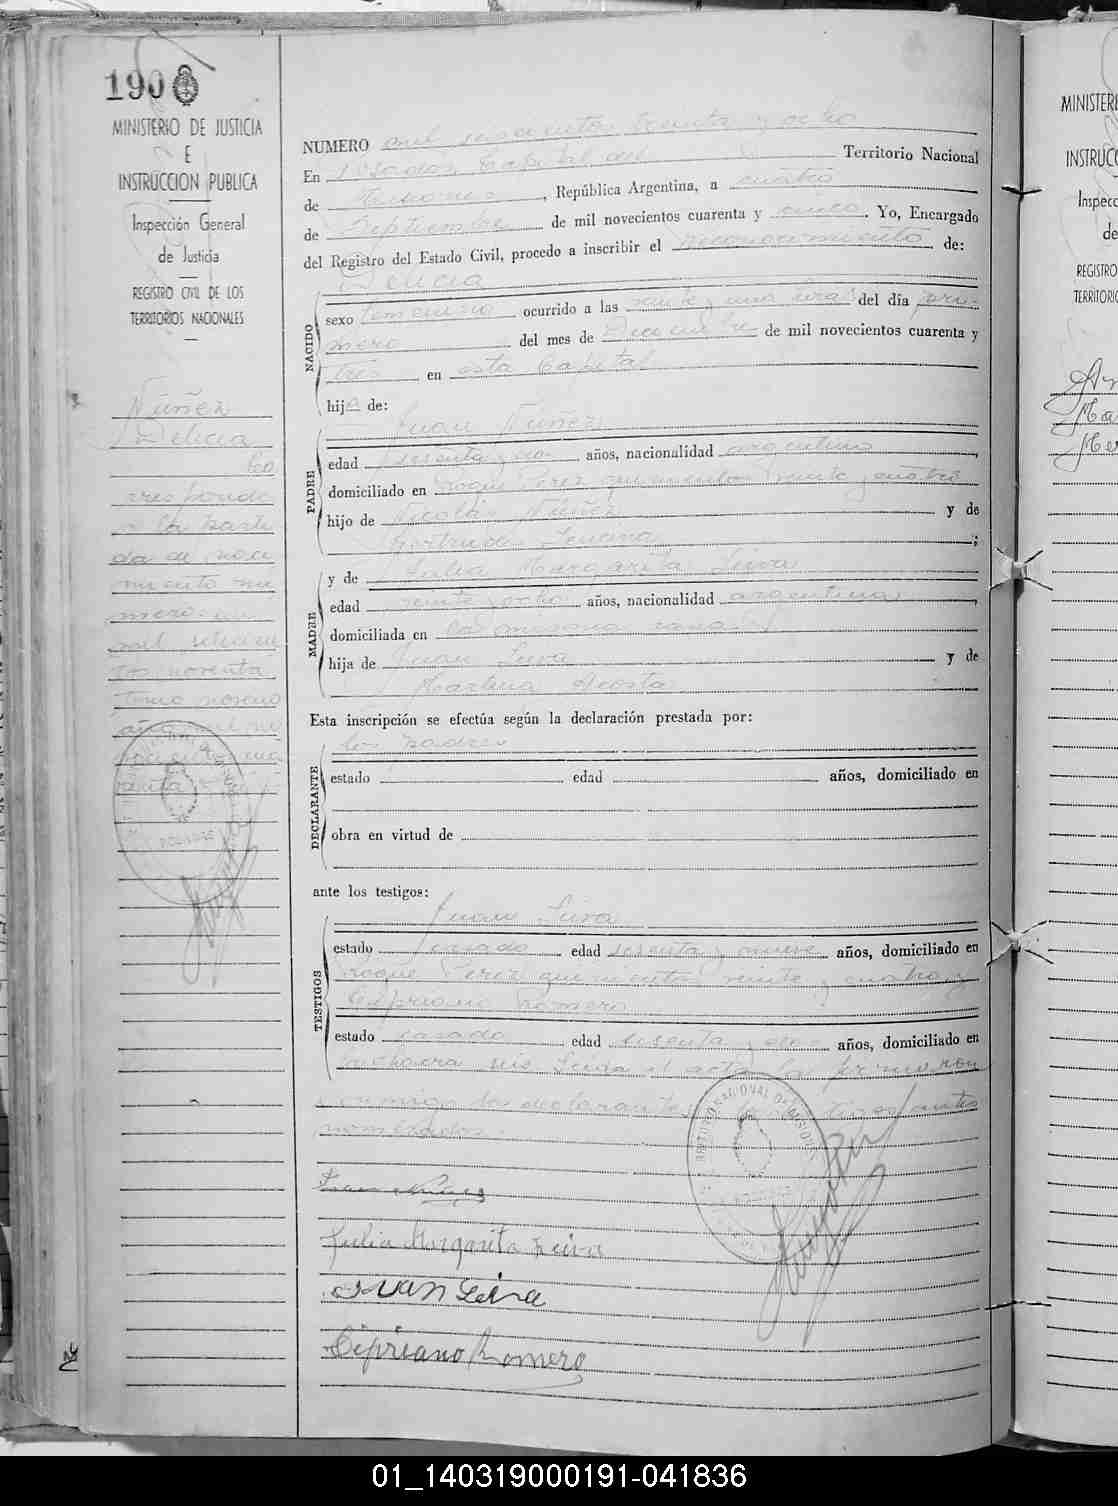 190
MINISTERIO DE JUSTICIA
E
INSTRUCCION PUBLICA
Inspección General
de Justicia
REGISTRO CIVIL DE LOS
TERRITORIOS NACIONALES
Nuñez
Delicia
Co
rresponde
a la parti
da de naci
miento nu
mero
mil setecien
tos noventa
tomo noveno
NUMERO mil seiscientos treinta y ocho
En Posadas Capital del Territorio Nacional
de Misiones, República Argentina, a cuatro
de Septiembre de mil novecientos cuarenta y cinco. Yo, Encargado
del Registro del Estado Civil, procedo a inscribir el reconocimiento de:
Delicia
NACIDO
sexo femenino ocurrido a las veinte y una horas del día pri-
mero del mes de Diciembre de mil novecientos cuarenta y
tres en esta Capital
hija de:
Juan Nuñez
PADRE
edad sesenta y años, nacionalidad argentino,
domiciliado en Roque Perez quinientos veinte y cuatro
hijo de Nicolás Nuñez y de
Gertrudis ;
y de Julia Margarita Leiva
MADRE
edad veinte y ocho años, nacionalidad argentina,
domiciliada en la misma casa
hija de Juan Leiva y de
Martina Acosta
Esta inscripción se efectúa según la declaración prestada por:
los padres
DECLARANTE
estado edad años, domiciliado en
obra en virtud de
ante los testigos:
Juan Leiva
TESTIGOS
estado casado edad sesenta y nueve años, domiciliado en
Roque Perez quinientos veinte y cuatro y
Cipriano Romero
estado casado edad sesenta y años, domiciliado en
la chacra seis Leida el acta la firmaron
conmigo los declarantes testigos antes
nombrados
Juan Nuñez
Julia Margarita Leiva
Juan Leiva
Cipriano Romero
MINISTERI
INSTRUCC
Inspecc
de
REGISTRO
TERRITORIO
01_140319000191-041836